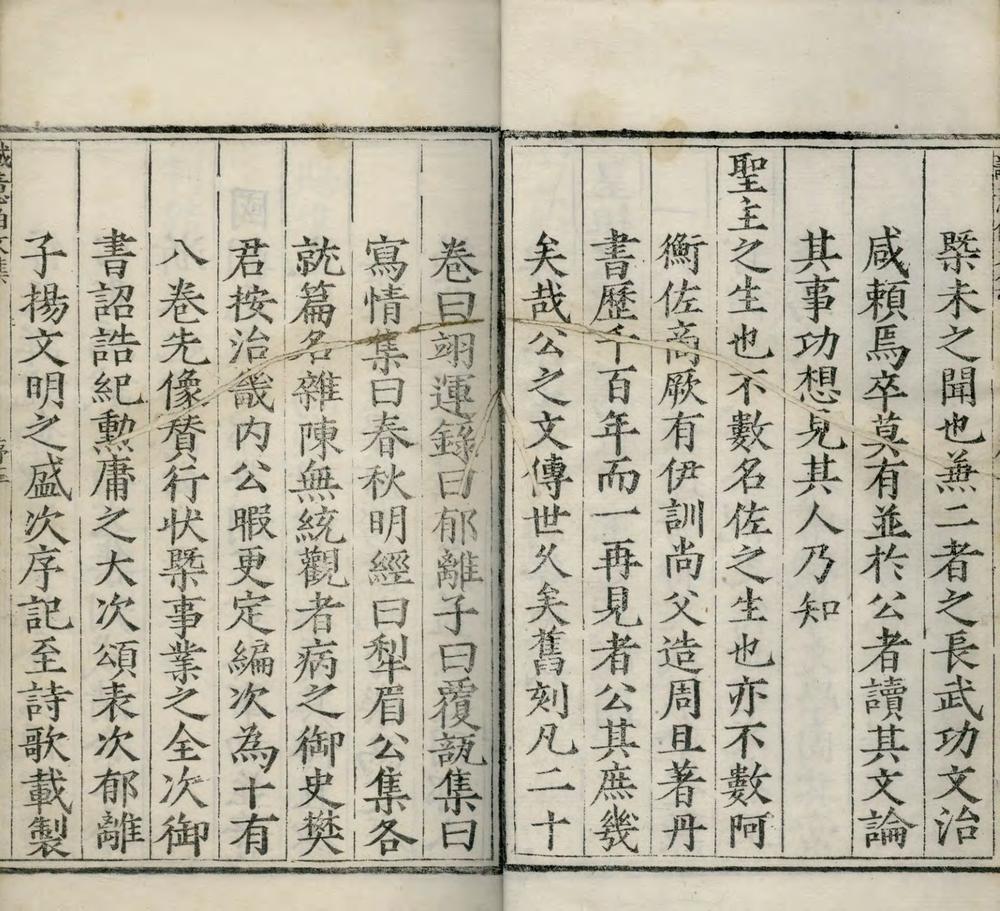 槩未之聞也無二者之長武功文治
咸賴焉卒莫有並於公者讀其文論
其事功想見其人乃知
聖主之生也不數名佐之生也亦不數阿
衡佐商厥有伊訓尚父造周且著丹
書歷千百年而一再見者公其庶幾
矣哉公之文傳世久矣舊刻凡二十
卷曰翊運錄曰郁離子曰覆瓿集曰
寫情集曰春秋明經曰犁眉公集各
就篇名雜陳無統觀者病之御史樊
君按治畿内公暇更定編次為十有
八卷先像賛行狀槩事業之全次御
書詔誥紀勲庸之大次頌表次郁離
子揚文明之盛次序記至詩歌載製
誠意伯文集